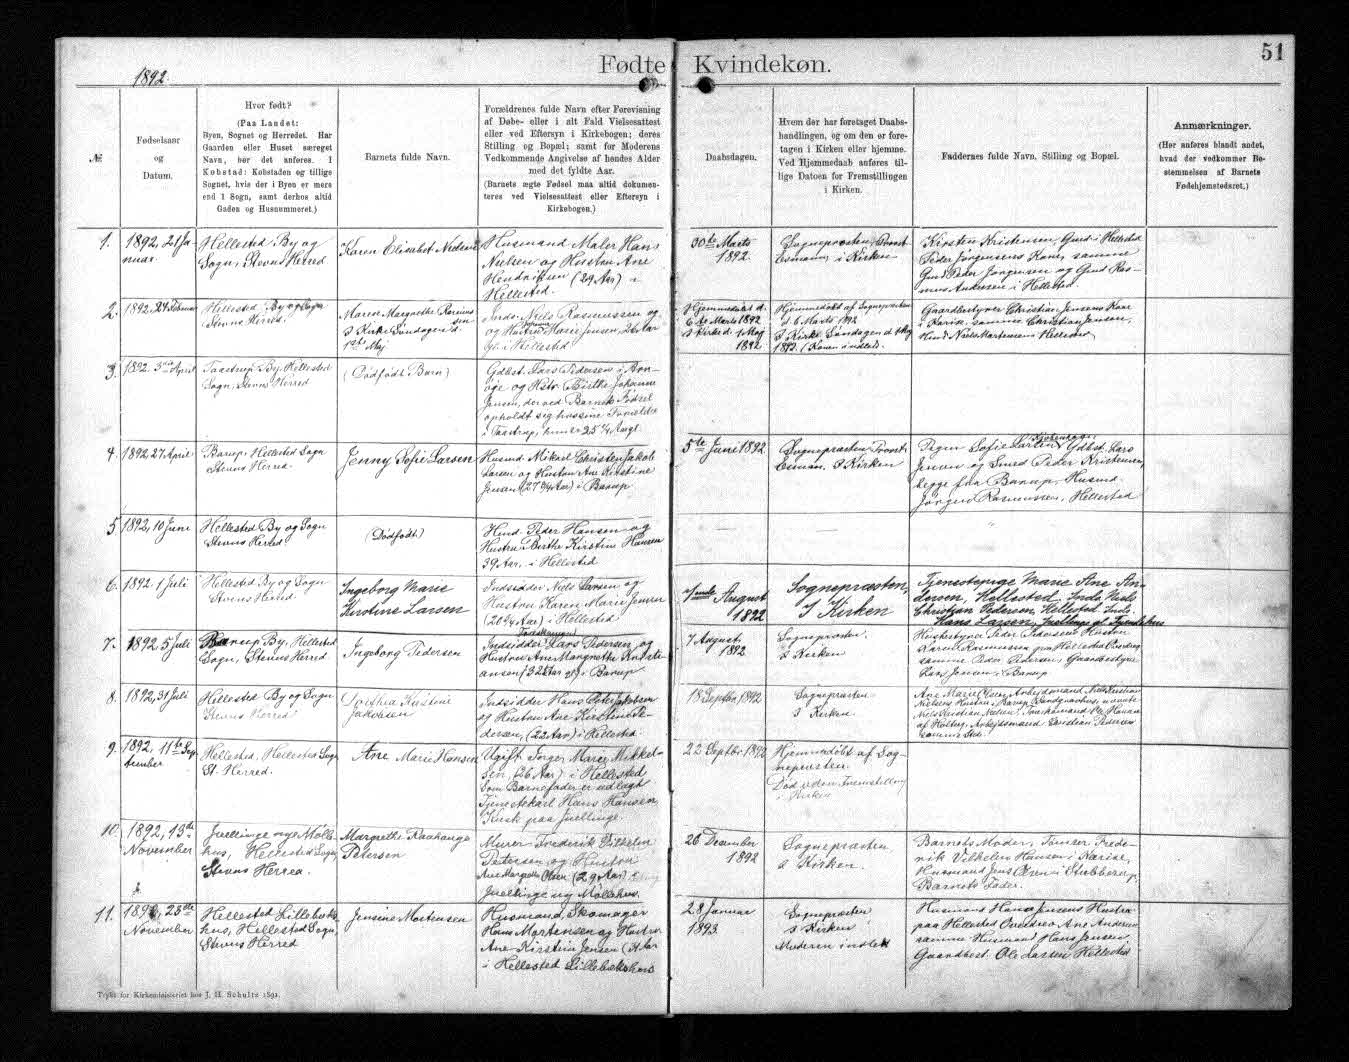 1892.
Fødte Kvindekøn.
51
№
Fødselsaar
og
Datum.
Hvor født?
(Paa Landet:
Byen, Sognet og Herredet. Har
Gaarden eller Huset særeget
Navn, bør det anføres. I
Købstad: Købstaden og tillige
Sognet, hvis der i Byen er mere
end 1 Sogn, samt derhos altid
Gaden og Husnummeret.)
Barnets fulde Navn.
Forældrenes fulde Navn efter Forevisning
af Døbe- eller i alt Fald Vielsesattest
eller ved Eftersyn i Kirkebogen; deres
Stilling og Bopæl; samt for Moderens
Vedkommende Angivelse af hendes Alder
med det fyldte Aar.
(Barnets ægte Fødsel maa altid dokumen-
teres ved Vielsesattest eller Eftersyn i
Kirkebogen.)
Daabsdagen.
Hvem der har foretaget Daabs-
handlingen, og om den er fore-
tagen i Kirken eller hjemme.
Ved Hjemmedaab anføres til-
lige Datoen for Fremstillingen
i Kirken.
Faddernes fulde Navn, Stilling og Bopæl.
Anmærkninger.
(Her anføres blandt andet,
hvad der vedkommer Be-
stemmelsen af Barnets
Fødehjemstedsret.)
1.
1892, 21 Ja-
nuar
Hellested By og
Sogn, Stevns Herred
Karen Elisabet Nielsen
Husmand Maler Hans
Nielsen og Hustru Ane
Hendriksen (29 Aar) i
Hellested.
30te Marts
1892.
Sognepræsten, Provst
Esmann, i Kirken
Kirsten Kristensen, Gmd i Hellested
Peder Jørgensens Kone, samme
Gmd Peder Jørgensen og Gmd Ras-
mus Andersen i Hellested.
2.
1892, 24 Februar
Hellested By og Sogn
Stevns Herred.
Maren Margrethe Rasmus-
sen
I Kirke Søndagen d.
1ste Maj
Inds. Niels Rasmussen og
og Hustru Marie Jensen, 26 Aar
gl. i Hellested
Hjemmedøbt d.
6te Marts 1892
I Kirke d. 1 Maj
1892
Hjemmedøbt af Sognepræsten
d. 6 Marts 1892
I Kirke Søndagen d. 1 Maj
1892. (Konen indledt.)
Gaardbestyrer Christian Jensens Kone
i Karise, samme Christian Jensen,
Hmd Niels Mortensens Hellested
3.
1892. 3die April
Taastrup By, Hellested
Sogn, Stevns Herred
(Dødfødt Barn)
Gdbst. Lars Pedersen i Arn-
øje og Hstr. Birthe Johanne
Jensen, der ved Barnets Fødsel
opholdt sig hos sine Forældre
i Taastrup, hun er 25 ¼ Aar gl.
4
1892 27 April
Barup, Hellested Sogn
Stevns Herred.
Jenny Sofie Larsen
Husmd Mikael Christen Jakob
Larsen og Hustru Ane Kristine
Jensen (27 ¾ Aar) i Barup
5te Juni 1892
Sognepræsten, Provst
Esman, I Kirken
Pigen Sofie Larsen Kjøbenhavn, Gdbst. Lars
Jensen og Smed Peder Kristensen,
begge fra Barup, Husmd.
Jørgen Rasmussen, Hellested
5
1892, 10 Juni
Hellested By og Sogn
Stevns Herred
(Dødfødt)
Hmd. Peder Hansen og
Hustru Birthe Kirstine Hansen
39 Aar, i Hellested
6.
1892. 1 Juli
Hellested By og Sogn
Stevns Herred
Ingeborg Marie
Kirstine Larsen
Indsidder Niels Larsen og
Hustru Karen Marie Jensen
(20 ¾ Aar) i Hellested
August
1892
Sognepræsten,
I Kirken
Tjenestepige Marie Ane An-
dersen, Hellested, Inds. Niels
Christian Pedersen, Hellested Inds.
Hans Larsen, Juellinge
7.
1892 5 Juli
Barup By, Hellested
Sogn, Stevns Herred
Ingeborg Pedersen
Indsidder Lars Pedersen og
Hustru Ane Margrethe Kristi-
ansen (32 Aar gl) i Barup
7 August
1892
Sognepræsten
I Kirken
Husbestyrer Peder Pedersens Hustru
Karen Rasmussen paa Hellested Overdrev,
samme Peder Pedersen, Gaardbestyrer
Lars Jensen, Barup
8.
1892, 31 Juli
Hellested By og Sogn
Stevns Herred
Dorthea Kirstine
Jakobsen
Indsidder Hans Peter Jakobsen
og Hustru Ane Kirstine Pe-
dersen, (22 Aar) i Hellested.
18 Septbr. 1892
Sognepræsten
I Kirken.
Ane Marie Olsen, Arbejdsmand Niels Kristian
Nielsens Hustru
af Holtug, Arbejdsmand Kristian Pedersen
samme Sted
9.
1892, 11te Sep-
tember
Hellested, Hellested Sogn
St. Herred.
Ane Marie Hansen
Ugift Inger Marie Mikkel-
sen, (26 Aar) i Hellested
Som Barnefader er udlagt
Tjenestekarl Hans Hansen
Kusk paa Juellinge
22 Septbr 1892
Hjemmedøbt af Sog-
nepræsten.
Død uden Fremstilling
i Kirken
10.
1892, 13de
November
Juellinge nye Mølle-
hus, Hellested Sogn,
Stevns Herred.
Margrethe Raahauge
Petersen
Murer Frederik Vilhelm
Petersen og Hustru
Ane Margrethe Olsen (29 Aar) i
Juellinge ny Møllehus
26 December
1892
Sognepræsten
I Kirken.
Barnets Moder, Tømrer Frede-
rik Vilhelm Hansen i Karise,
Husmand Jens Olsen i Stubberup,
Barnets Fader.
11.
1892, 25de
November
Hellested Lillebæks-
hus, Hellested Sogn,
Stevns Herred
Jensine Mortensen
Husmand, Skomager
Hans Mortensen og Hustru
Ane Kirstine Jensen
i Hellested Lillebækshus
28 Januar
1893.
Sognepræsten
I Kirken
Moderen indledt
Husmand Hans Jensens Hustru
paa Hellested Overdrev Ane Andersen
samme Husmand Hans Jensen
Gaardbest. Ole Larsen Hellested
Trykt for Kirkeministeriet hos J. H. Schultz 1891.